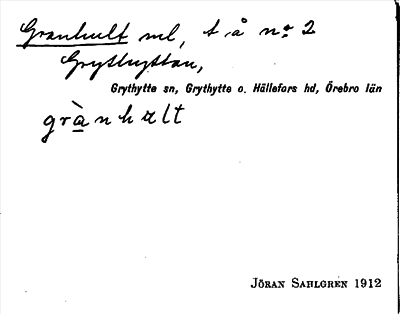 Granhult ml, t å nr 2
Grythyttan,
Grythytte sn, Grythytte o. Hällefors hd, Örebro län
grànhult
JÖRAN SAHLGREN 1912